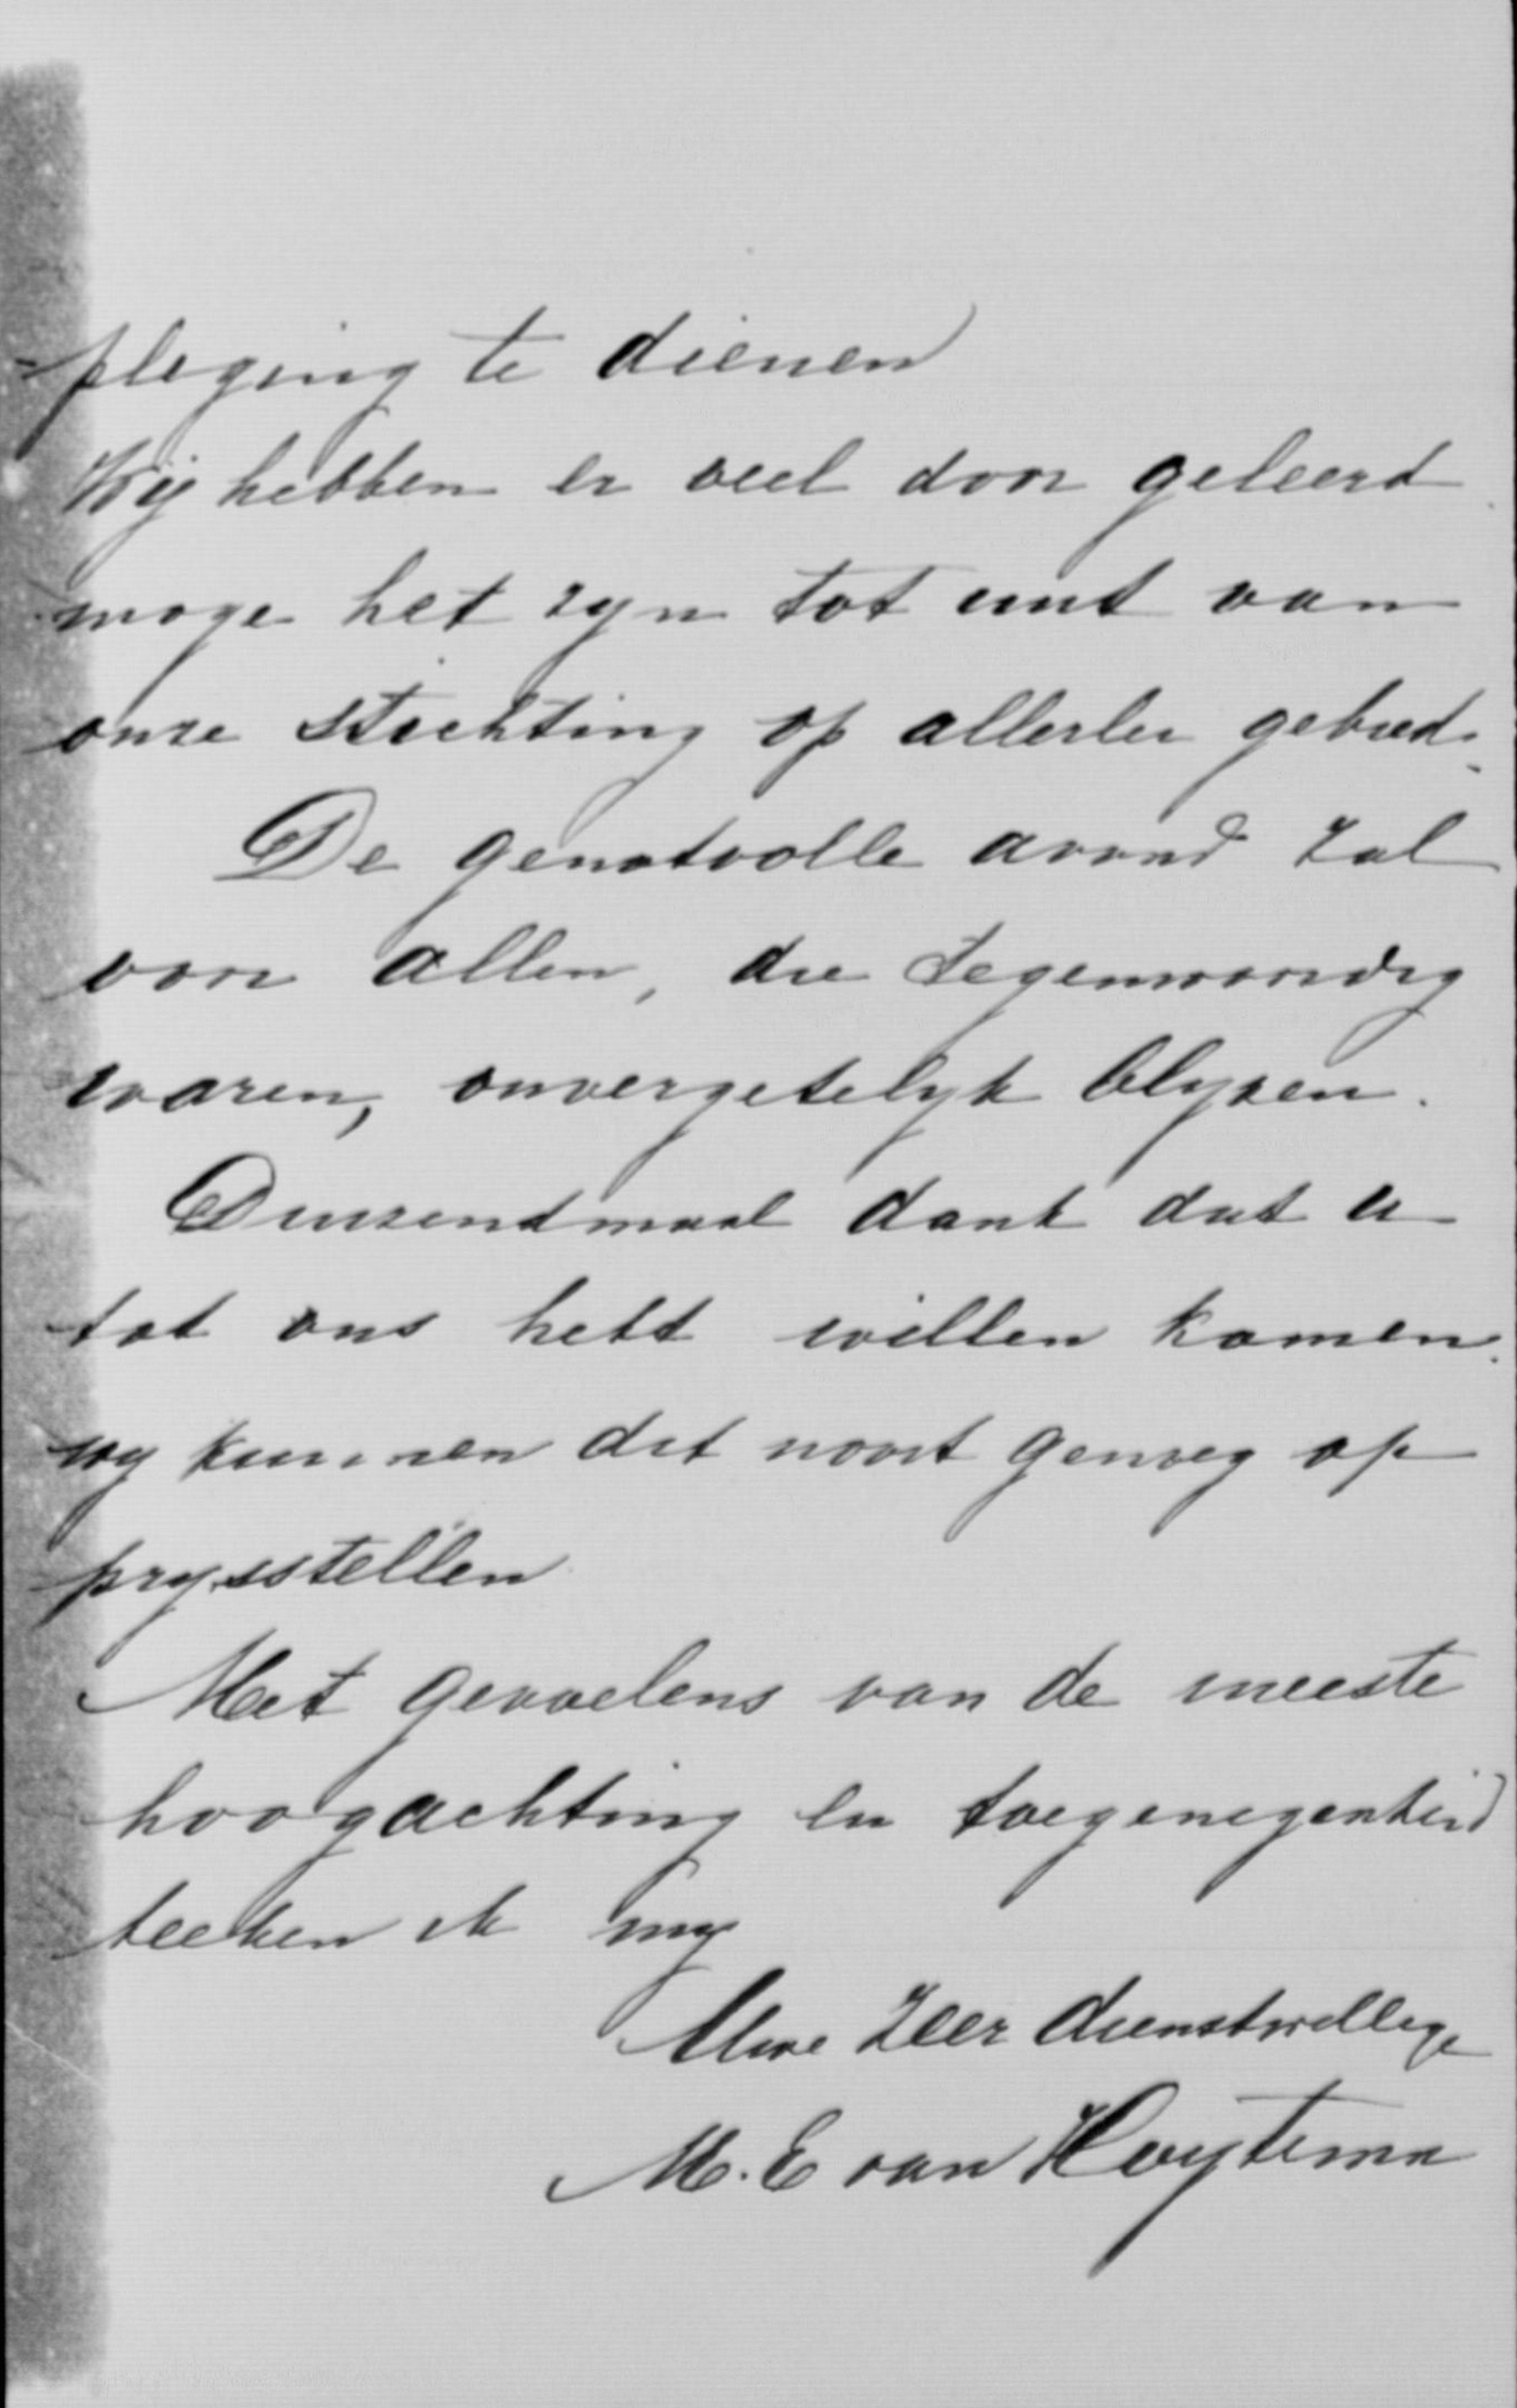 -pleging te dienen
Wij hebben er veel door geleerd
moge het zyn tot nut van
onze stichting op allerlei gebied.
De genotvolle avond zal
voor allen, die tegenwoordig
waren, onvergetelyk blyven.
Duizendmaal dank dat u
tot ons hebt willen komen.
wy kunnen dit nooit genoeg op
prysstellen
Met gevoelens van de meeste
hoogachting en toegenegenheid
teeken ik my
Uwe Zeer dienstwillige
M. E van Hoytema